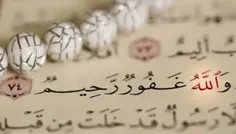 ـيمٌ ٧٣
وَٱللَّهُ غَفُورٌ رَّحِيمٌ ٧٤
إِلَّا رَسُولٌ قَدْ خَلَتْ مِن قَبْلِـ